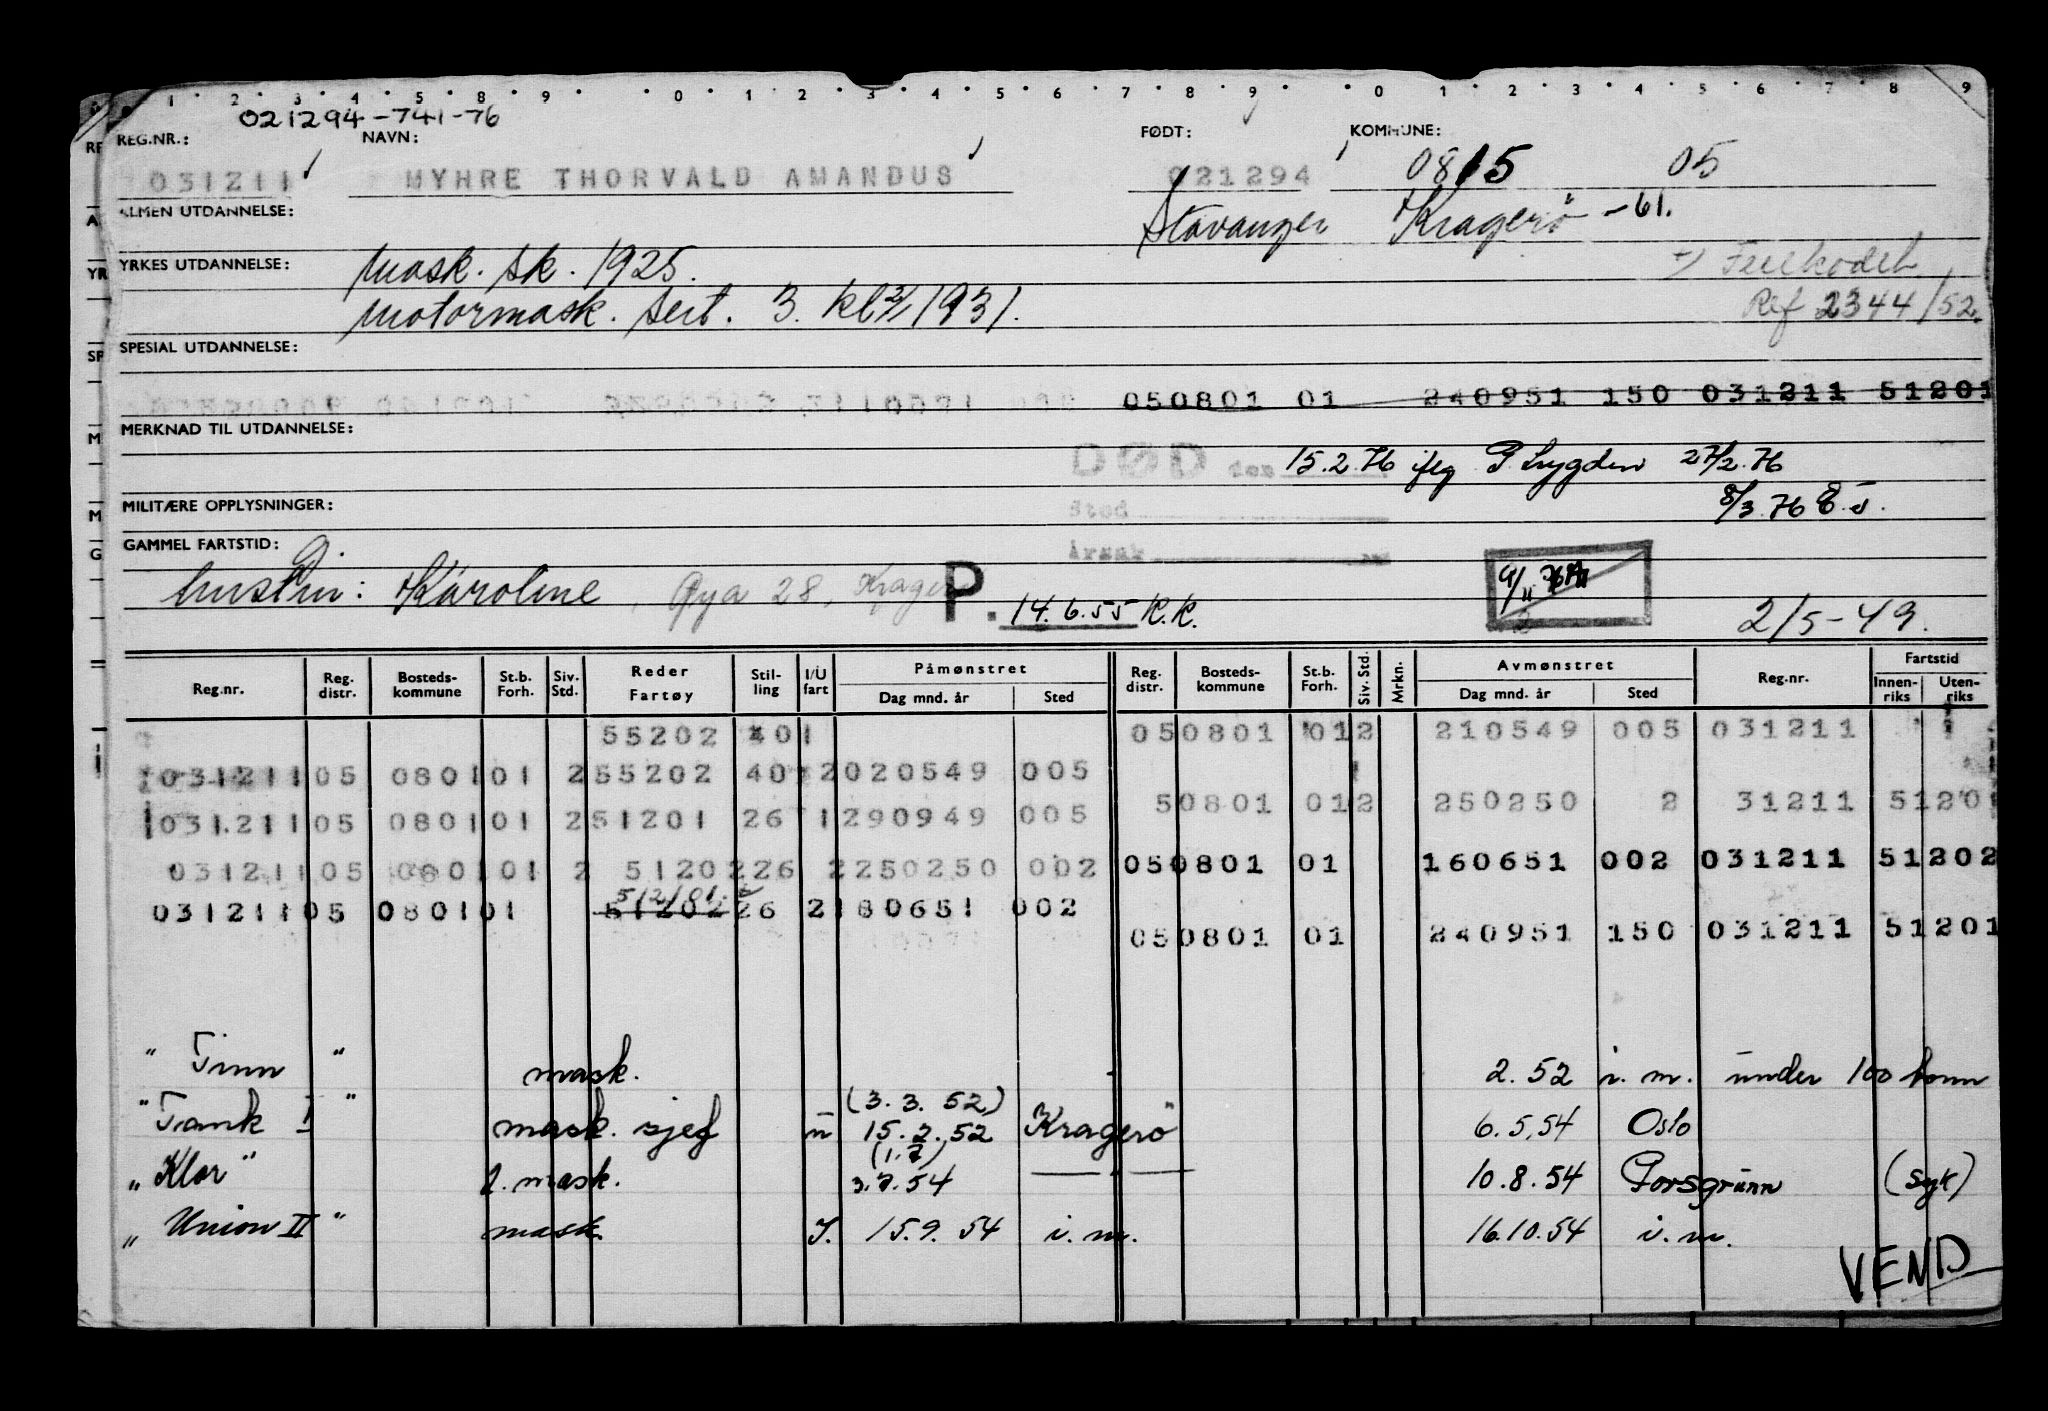 1 2 3 4 5 8 9 0 1 2 3 4 5 6 7 8 9 0 1 2 3 4 5 6 7 8 9
021294-741-76
REG.NR.: NAVN: FØDT: KOMMUNE:
031211 MYHRE THORVALD AMANDUS 021294 0815 05
ALMEN UTDANNELSE: Stavanger Kragerö -61.
YRKES UTDANNELSE: Mask. sk. 1925. Feilkodet
Motormask. sert. 3. kl 1931. Ref 2344/52
SPESIAL UTDANNELSE:
050801 01 240951 150 031211 51201
MERKNAD TIL UTDANNELSE:
DØD den 15.2.76 iflg P. Lygden 27/2.76
MILITÆRE OPPLYSNINGER: Sted 8/3.76 E.J.
GAMMEL FARTSTID: Årsak
hustru: Karoline, Øya 28, Kragerø P. 14.6.55 K.K. 9/11 2/5-49.
Reg.nr. Reg. distr. Bosteds-kommune St.b. Forh. Siv. Std. Reder Fartøy Stil-ling I/U fart Påmønstret Dag mnd. år Sted Reg. distr. Bosteds-kommune St.b. Forh. Siv. Std. Mrkn. Avmønstret Dag mnd. år Sted Reg.nr. Fartstid Innen-riks Uten-riks
55202 401 050801 012 210549 005 031211
031211 05 0801 01 2 55202 40 2 020549 005
50801 012 250250 2 31211 51201
031211 05 0801 01 2 51201 26 1 290949 005
031211 05 0801 01 2 51202 26 2 250250 002 050801 01 160651 002 031211 51202
51201
031211 05 0801 01 51202 26 2 180651 002
050801 01 240951 150 031211 51201
"Tinn" mask. 2.52 i.m. under 100 tonn
(3.3.52)
"Tank I" mask. sjef u 15.2.52 Kragerö 6.5.54 Oslo
(1.7)
"Klor" 2. mask. 3.7.54 — " — 10.8.54 Porsgrunn (syk)
"Union II" mask. I. 15.9.54 i.m. 16.10.54 i.m.
VEND